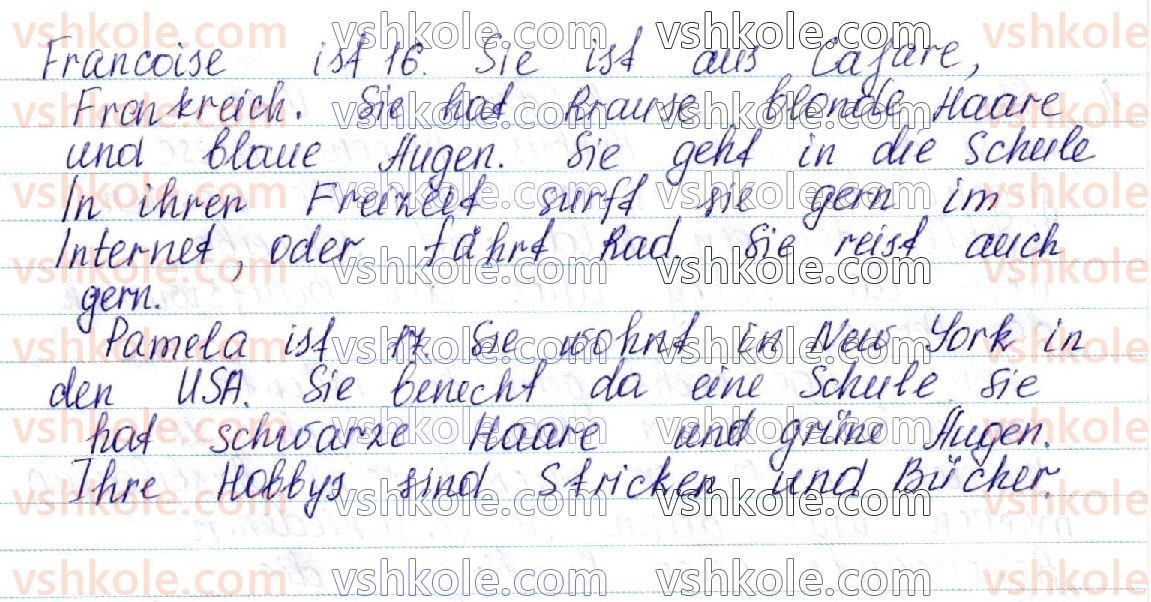 Francoise ist 16. Sie ist aus Cafare,
Frankreich. Sie hat krause, blonde Haare
und blaue Augen. Sie geht in die Schule
In ihrer Freizeit surft sie gern im
Internet, oder fährt Rad. Sie reist auch
gern.
Pamela ist 17. Sie wohnt in New York in
den USA. Sie benecht da eine Schule Sie
hat schwarze Haare und grüne Augen.
Ihre Hobbys sind Stricken und Bücher.